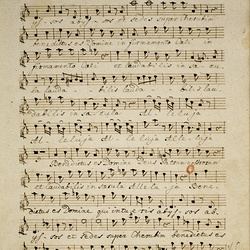 ys. sos abys. sos et sedes super Cherubim
benedictus es Domine in firmamento Cæli in
firmamento Cæli et laudabilis in sæcu
la lauda bilis lauda bilis lau
dabilis in sæcula Alleluja
Alleluja Alleluja Allelu
Benedictus es Domine Deus Patrum nostrorum
et laudabilis in sæcula Alleluja Bene
dictus es Domine qui intueris abys. sos ab
ys. sos et sedes super Cherubim benedictus es